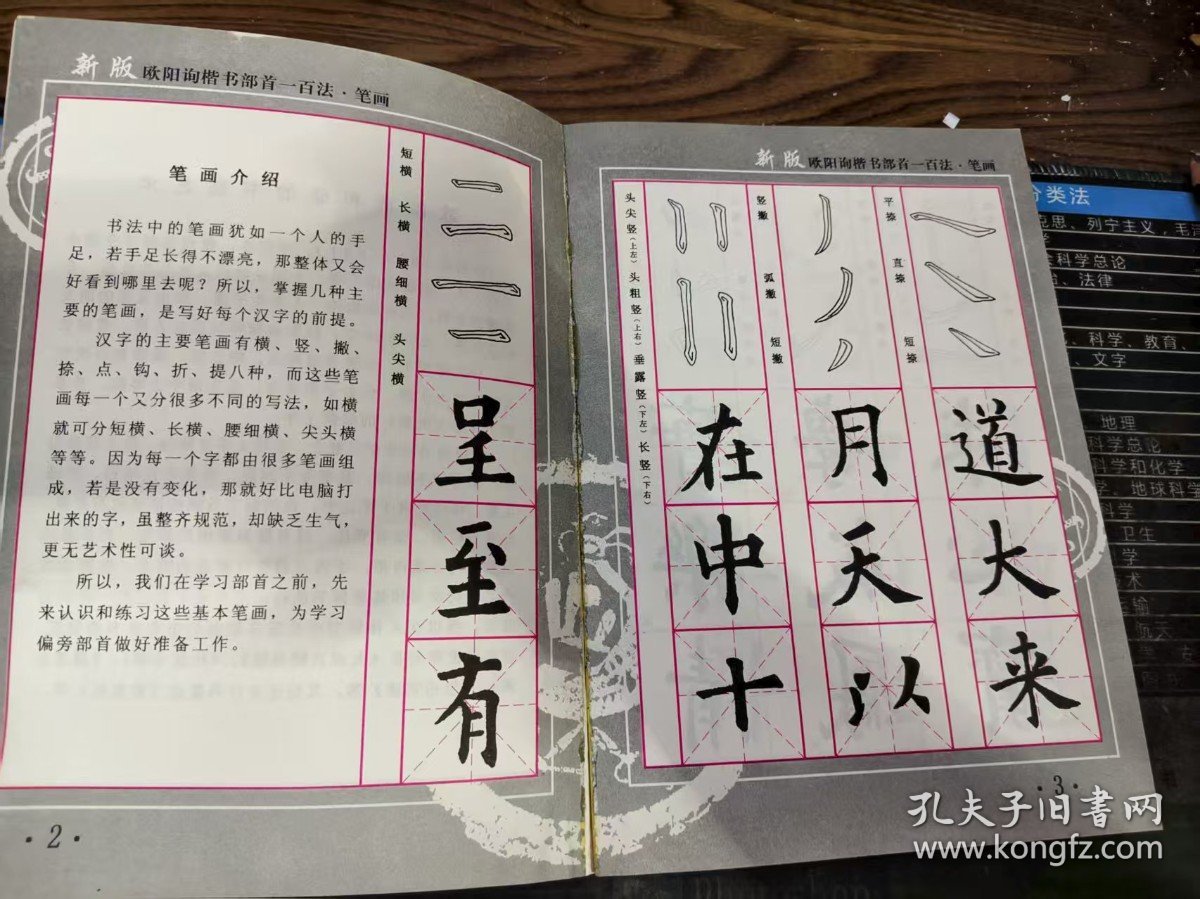 新版 欧阳询楷书部首一百法·笔画
笔画介绍
书法中的笔画犹如一个人的手
足，若手足长得不漂亮，那整体又会
好看到哪里去呢？所以，掌握几种主
要的笔画，是写好每个汉字的前提。
汉字的主要笔画有横、竖、撇、
捺、点、钩、折、提八种，而这些笔
画每一个又分很多不同的写法，如横
就可分短横、长横、腰细横、尖头横
等等。因为每一个字都由很多笔画组
成，若是没有变化，那就好比电脑打
出来的字，虽整齐规范，却缺乏生气，
更无艺术性可谈。
所以，我们在学习部首之前，先
来认识和练习这些基本笔画，为学习
偏旁部首做好准备工作。
短横 长横 腰细横 头尖横
呈
至
有
·2·
新版 欧阳询楷书部首一百法·笔画
头尖竖（上左） 头粗竖（上右） 垂露竖（下左） 长竖（下右）
在
中
十
竖撇 弧撇 短撇
月
天
以
平捺 直捺 短捺
道
大
来
·3·
分类法
克思、列宁主义，毛
科学总论
、法律
、科学、教育、
、文字
地理
科学总论
科学和化学
、地球科学
科学
卫生
学
术
输
航天
孔夫子旧書网
www.kongfz.com